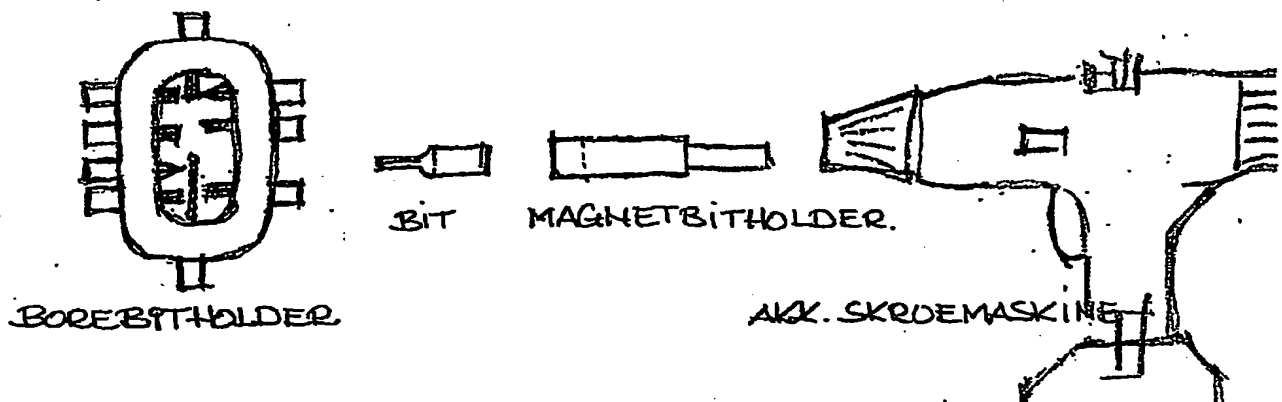 BIT
MAGNETBITHOLDER.
BOREBITHOLDER
AKK. SKRUEMASKINE